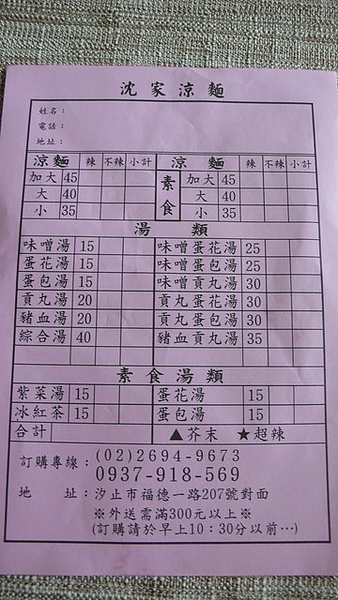 沈家涼麵
姓名：
電話：
地址：
涼麵 辣 不辣 小計 涼麵 辣 不辣 小計
加大 45 素食 加大 45
大 40 大 40
小 35 小 35
湯類
味噌湯 15 味噌蛋花湯 25
蛋花湯 15 味噌蛋包湯 25
蛋包湯 15 味噌貢丸湯 30
貢丸湯 20 貢丸蛋花湯 30
豬血湯 20 貢丸蛋包湯 30
綜合湯 40 豬血貢丸湯 35
素食湯類
紫菜湯 15 蛋花湯 15
冰紅茶 15 蛋包湯 15
合計 ▲芥末 ★超辣
訂購專線：(02)2694-9673
0937-918-569
地址：汐止市福德一路207號對面
※外送需滿300元以上※
(訂購請於早上10：30分以前…)